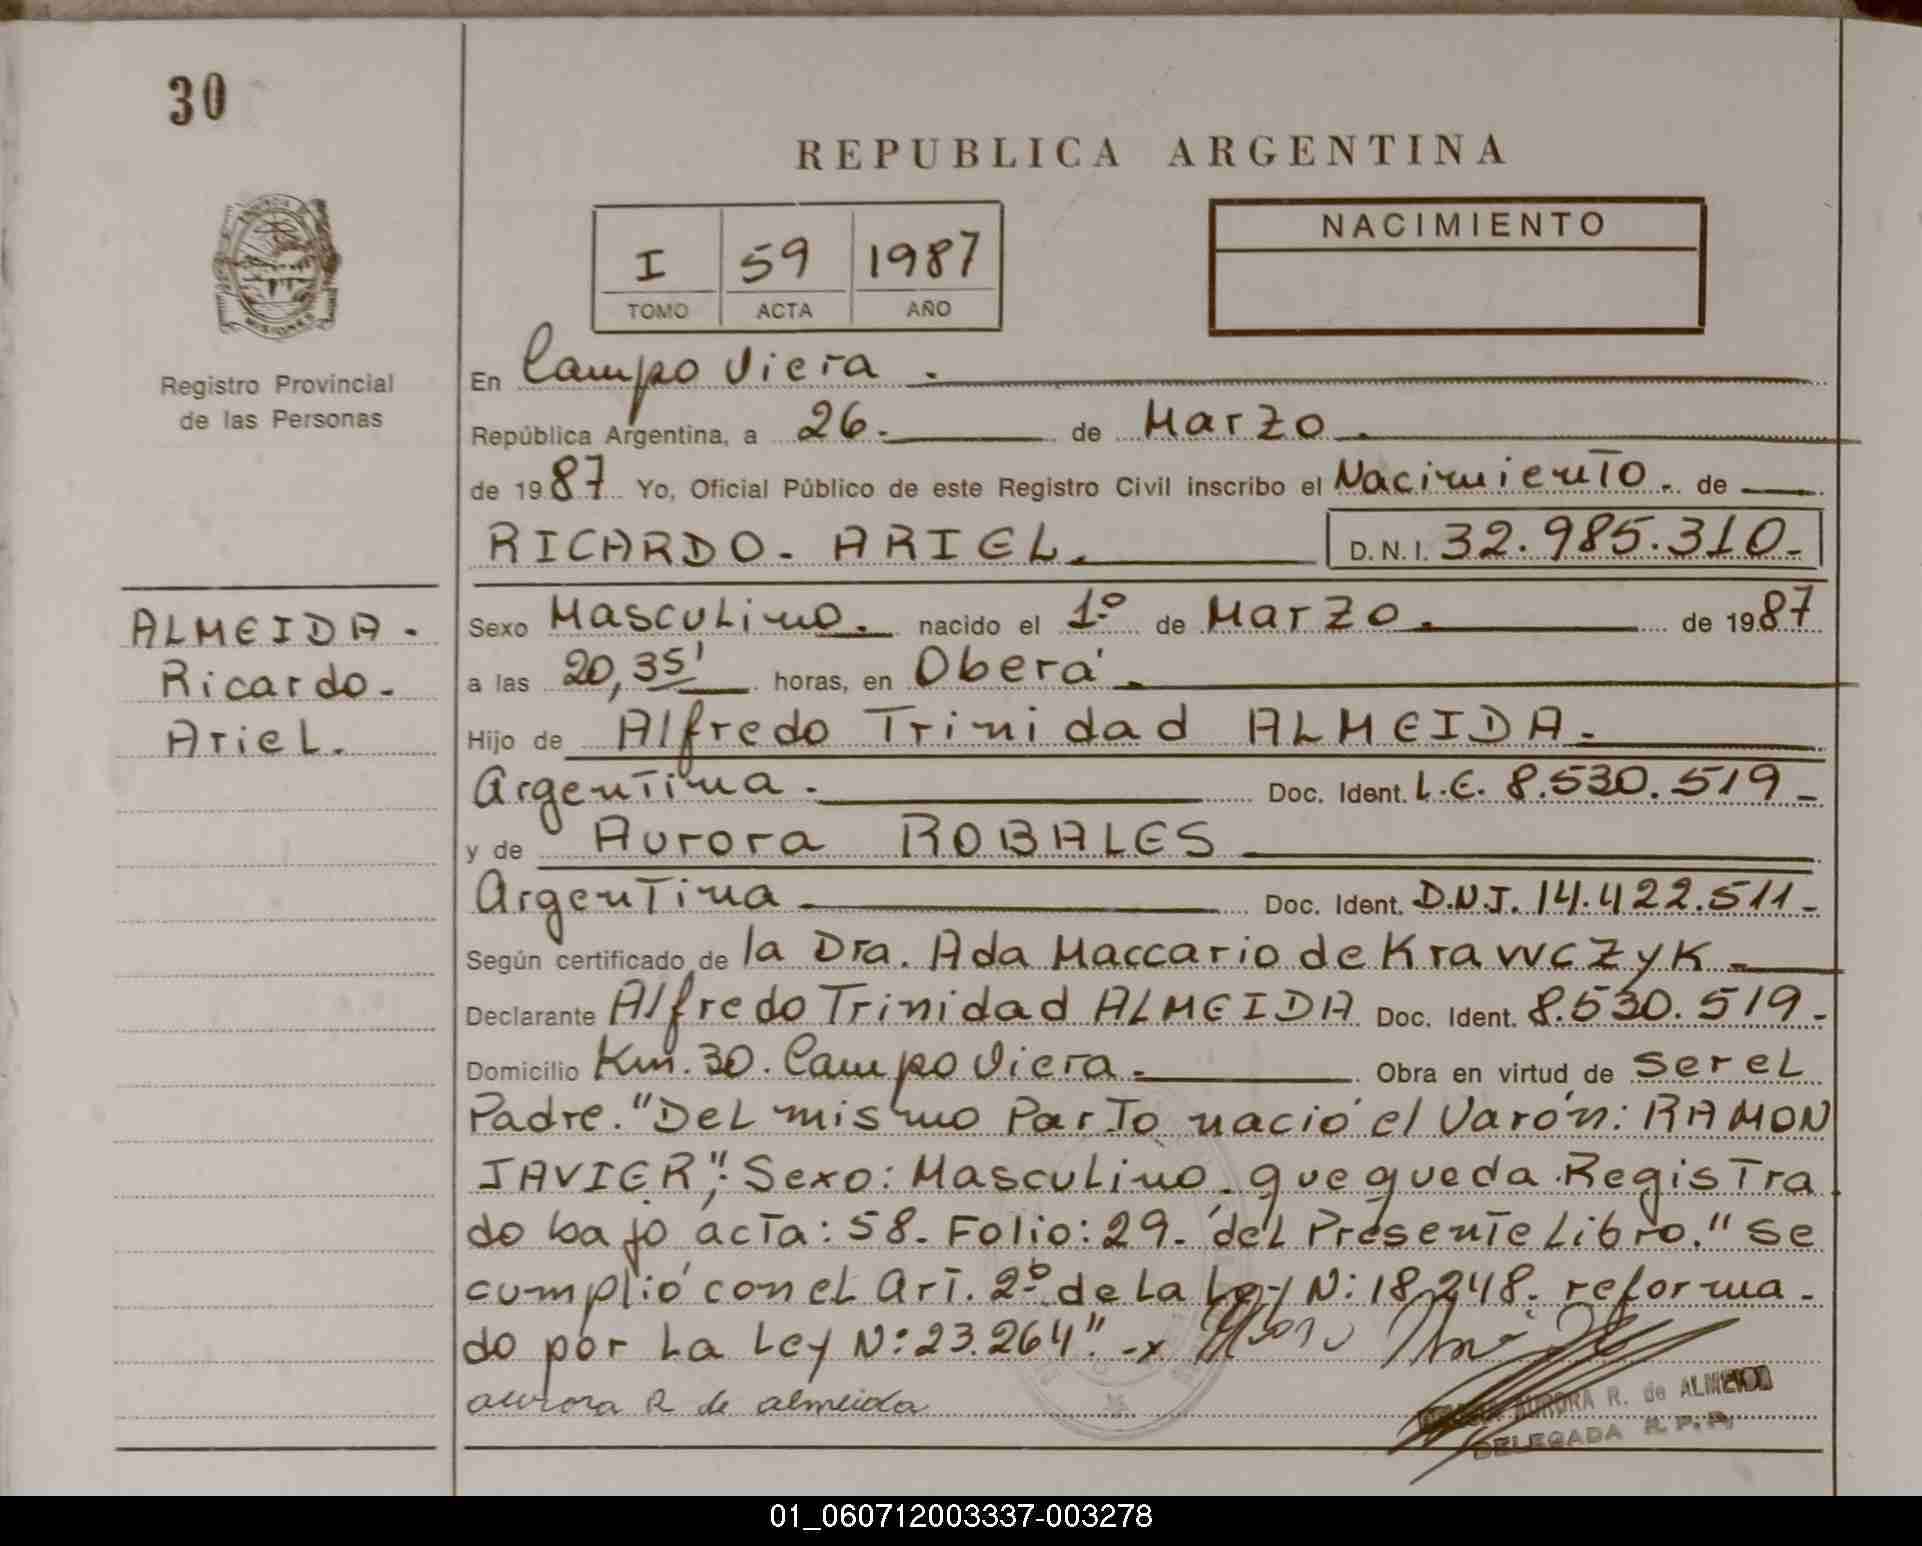 30
REPUBLICA ARGENTINA
I 59 1987
TOMO ACTA AÑO
NACIMIENTO
MISIONES
Registro Provincial
de las Personas
En Campo Viera.
República Argentina, a 26. de Marzo.
de 1987 Yo, Oficial Público de este Registro Civil inscribo el Nacimiento. de
RICARDO. ARIEL. D.N.I. 32.985.310-
ALMEIDA.
Ricardo.
Ariel.
Sexo Masculino. nacido el 1º de Marzo. de 1987
a las 20,35' horas, en Oberá.
Hijo de Alfredo Trinidad ALMEIDA.
Argentina. Doc. Ident. L.E. 8.530.519-
y de Aurora ROBALES
Argentina Doc. Ident. D.N.I. 14.422.511-
Según certificado de la Dra. Ada Maccario de Krawczyk-
Declarante Alfredo Trinidad ALMEIDA Doc. Ident. 8.530.519-
Domicilio Km. 30. Campo Viera. Obra en virtud de ser el
Padre. "Del mismo Parto nació el Varón: RAMON
JAVIER"; Sexo: Masculino. que queda Registra
do bajo acta: 58. Folio: 29. del Presente Libro." Se
cumplió con el Art. 2º de La Ley N: 18.248. reforma-
do por La Ley N: 23.264".-x
aurora R de almeida
AURORA R. de ALMEIDA
DELEGADA R. P. P.
01_060712003337-003278